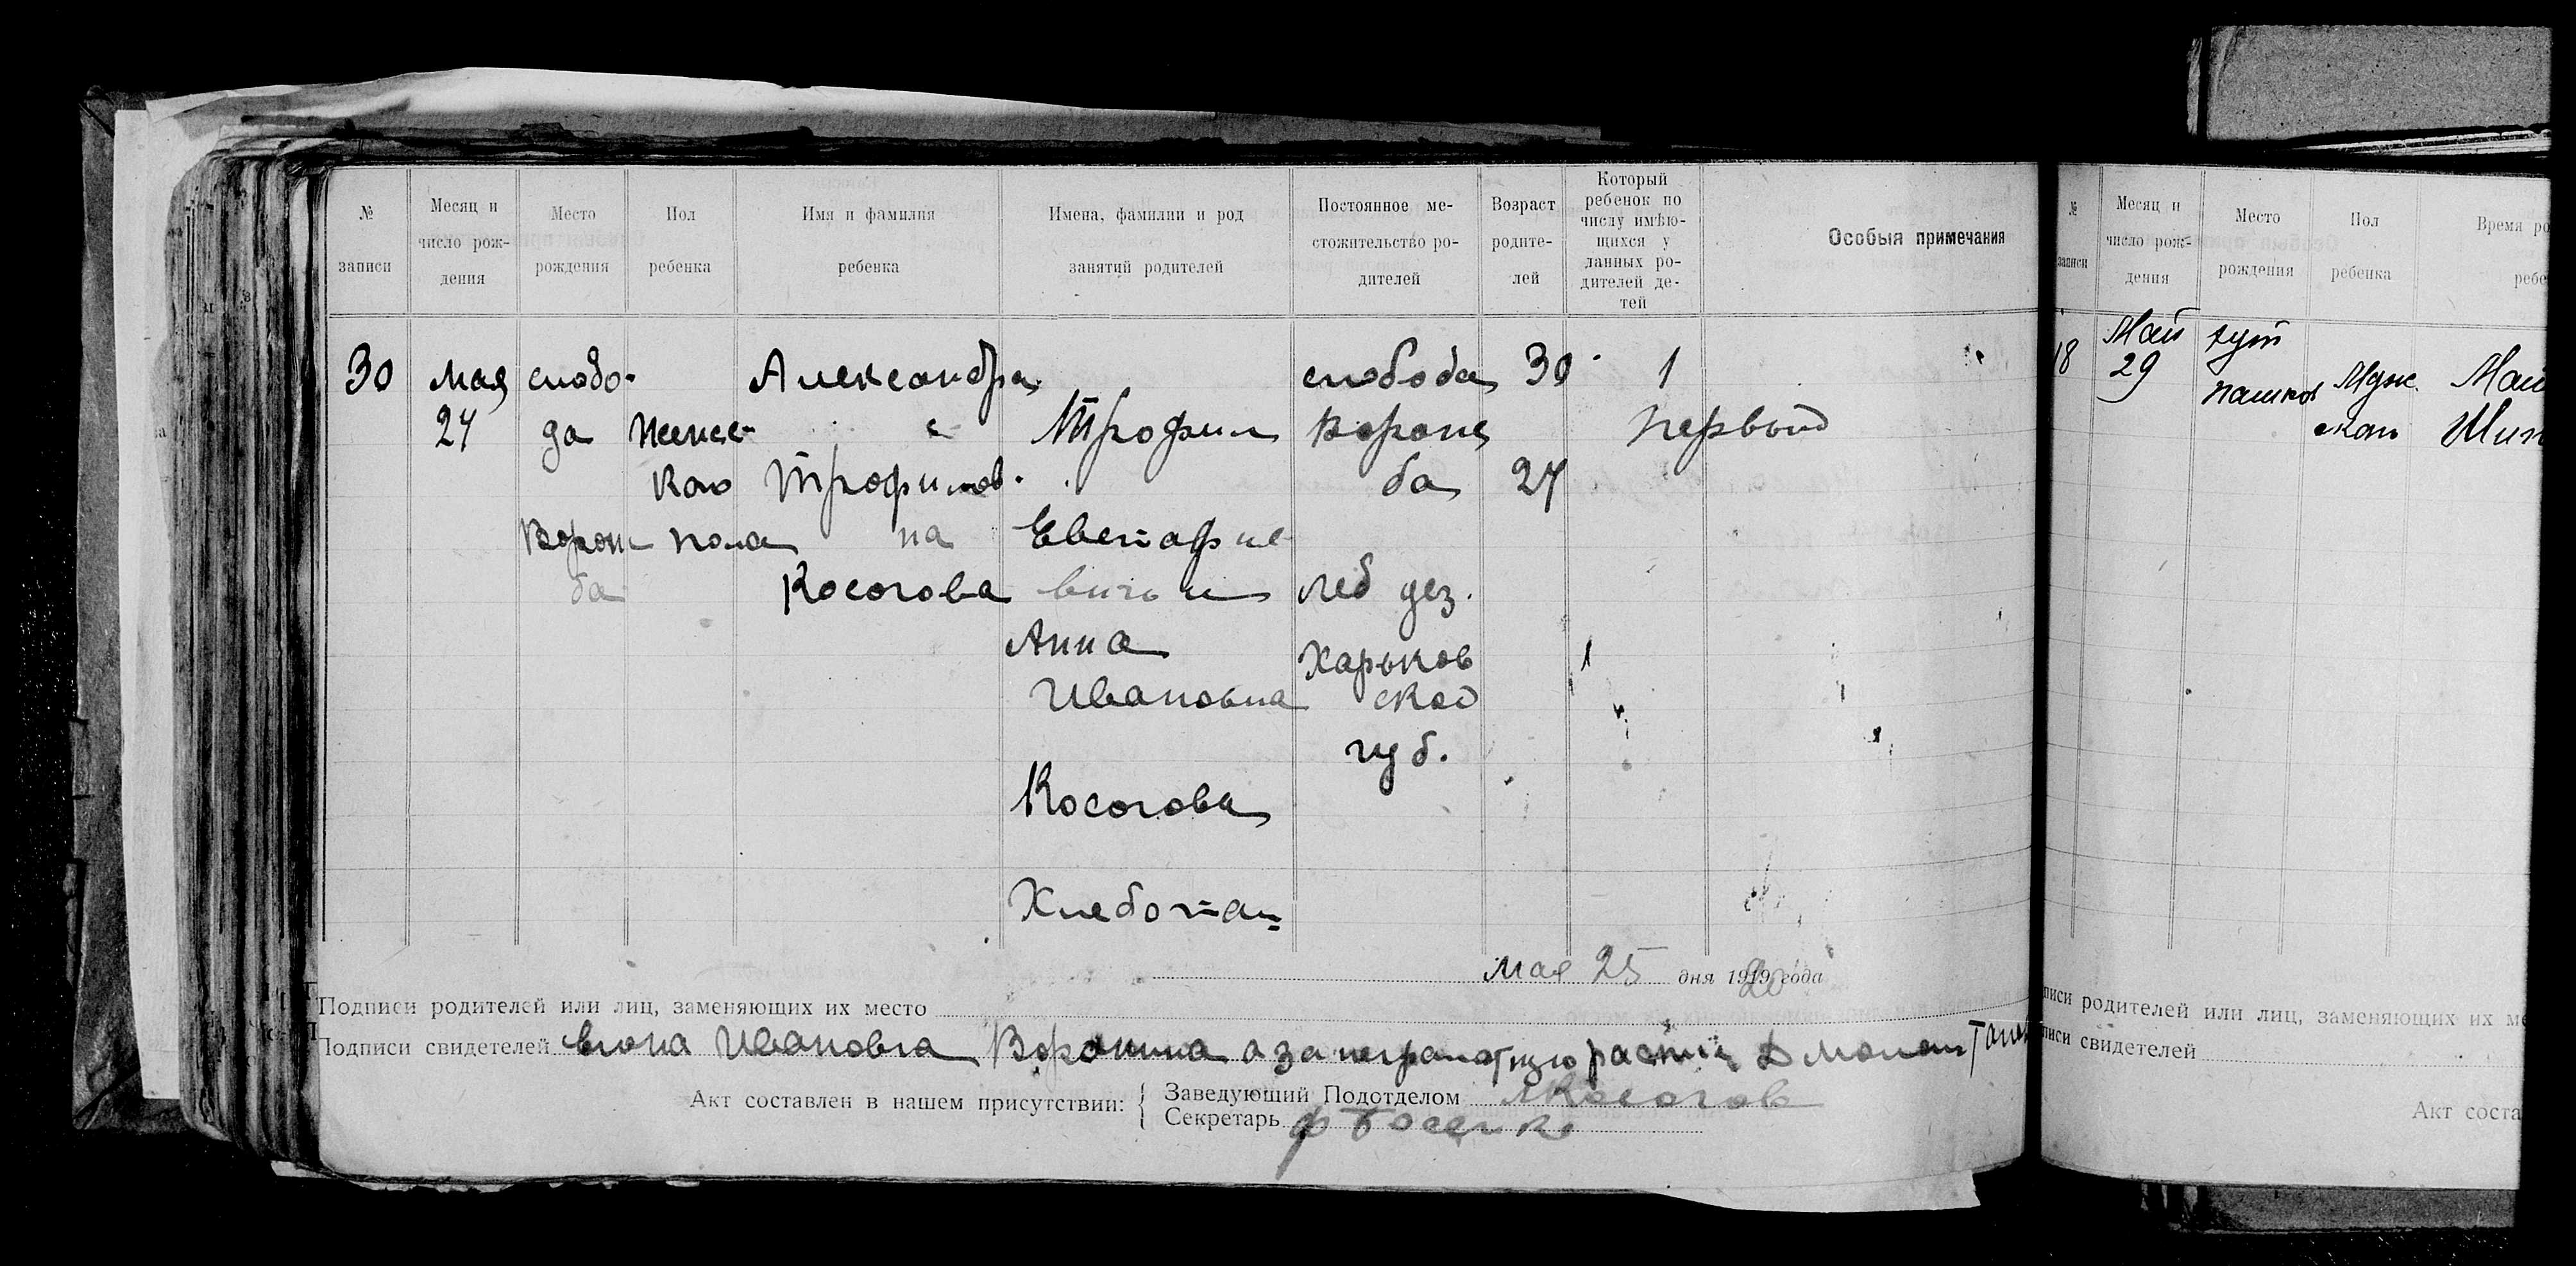 № записи
Месяц и число рож-дения
Место рождения
Пол ребенка
Имя и фамилия ребенка
Имена, фамилии и род занятий родителей
Постоянное ме-стожительство ро-дителей
Возраст родите-лей
Который ребенок по числу имѣю-щихся у данных ро-дителей де-тей
Особыя примечания
30
мая 24
слобо-
да
Ворон
ба
Женс-
каго
пола
Александра
Трофимов-
на
Косогова
Трофим
Евстафие
вичь и
Анна
Ивановна
Косогова
Хлебопаш
слобода
Вороне
ба
Леб уез.
Харьков
ской
губ.
30
27
1
первый
мая 25 дня 1920 года
Подписи родителей или лиц, заменяющих их место
Подписи свидетелей Ивановна Воронина а за неграмотную
Акт составлен в нашем присутствии:
Заведующий Подотделом Косогов
Секретарь
№ записи
Месяц и число рож-дения
Место рождения
Пол ребенка
Время ро
ребе
18
Май
29
хут
пашков
Муж
скаго
Май
родителей или лиц, заменяющих их ме
свидетелей
Акт соста